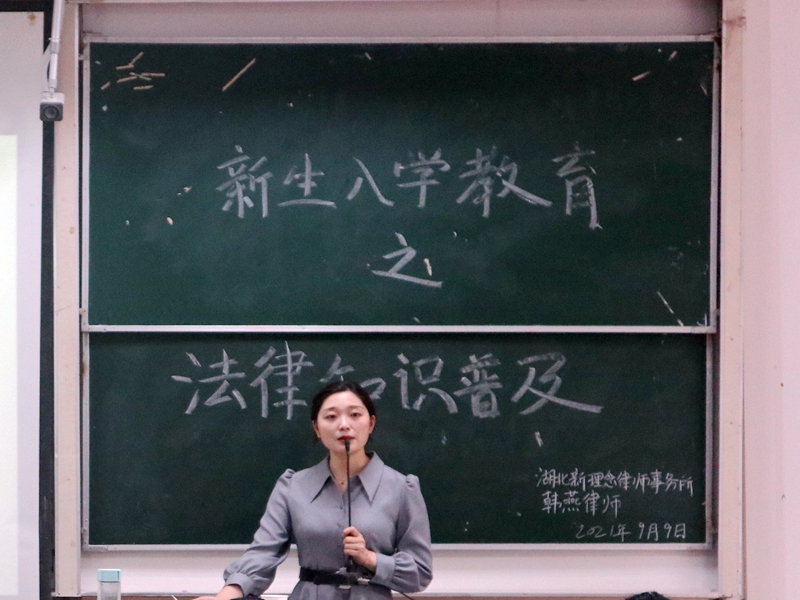 新生入学教育
之
法律知识普及
湖北新理念律师事务所
韩燕律师
2021年9月9日